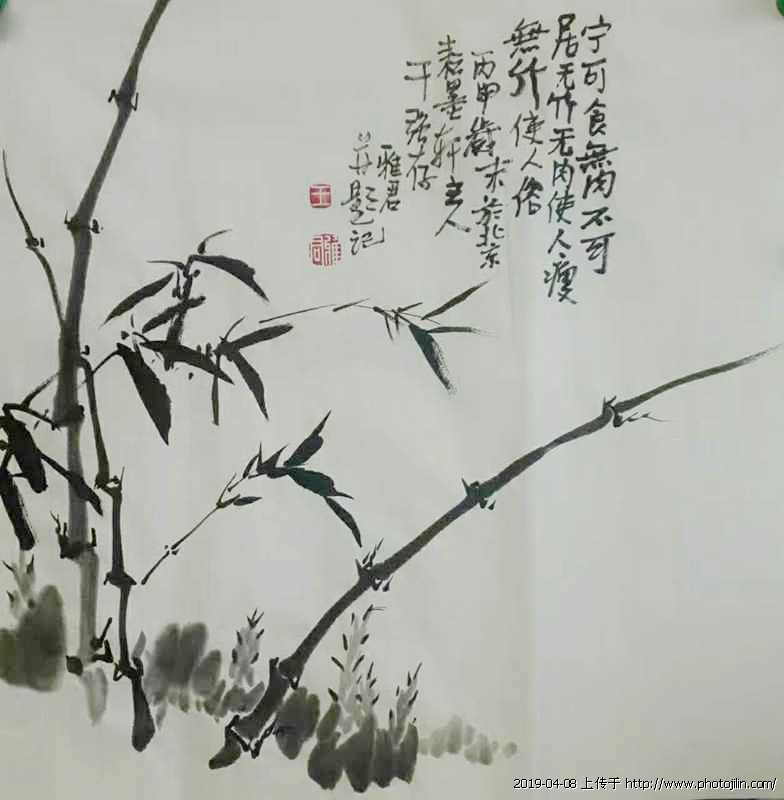 宁可食無肉不可
居无竹无肉使人瘦
無竹使人俗
丙申歲末於北京
墨轩主人
雅君
并题记
王
2019-04-08 上传于 http://www.photojilin.com/